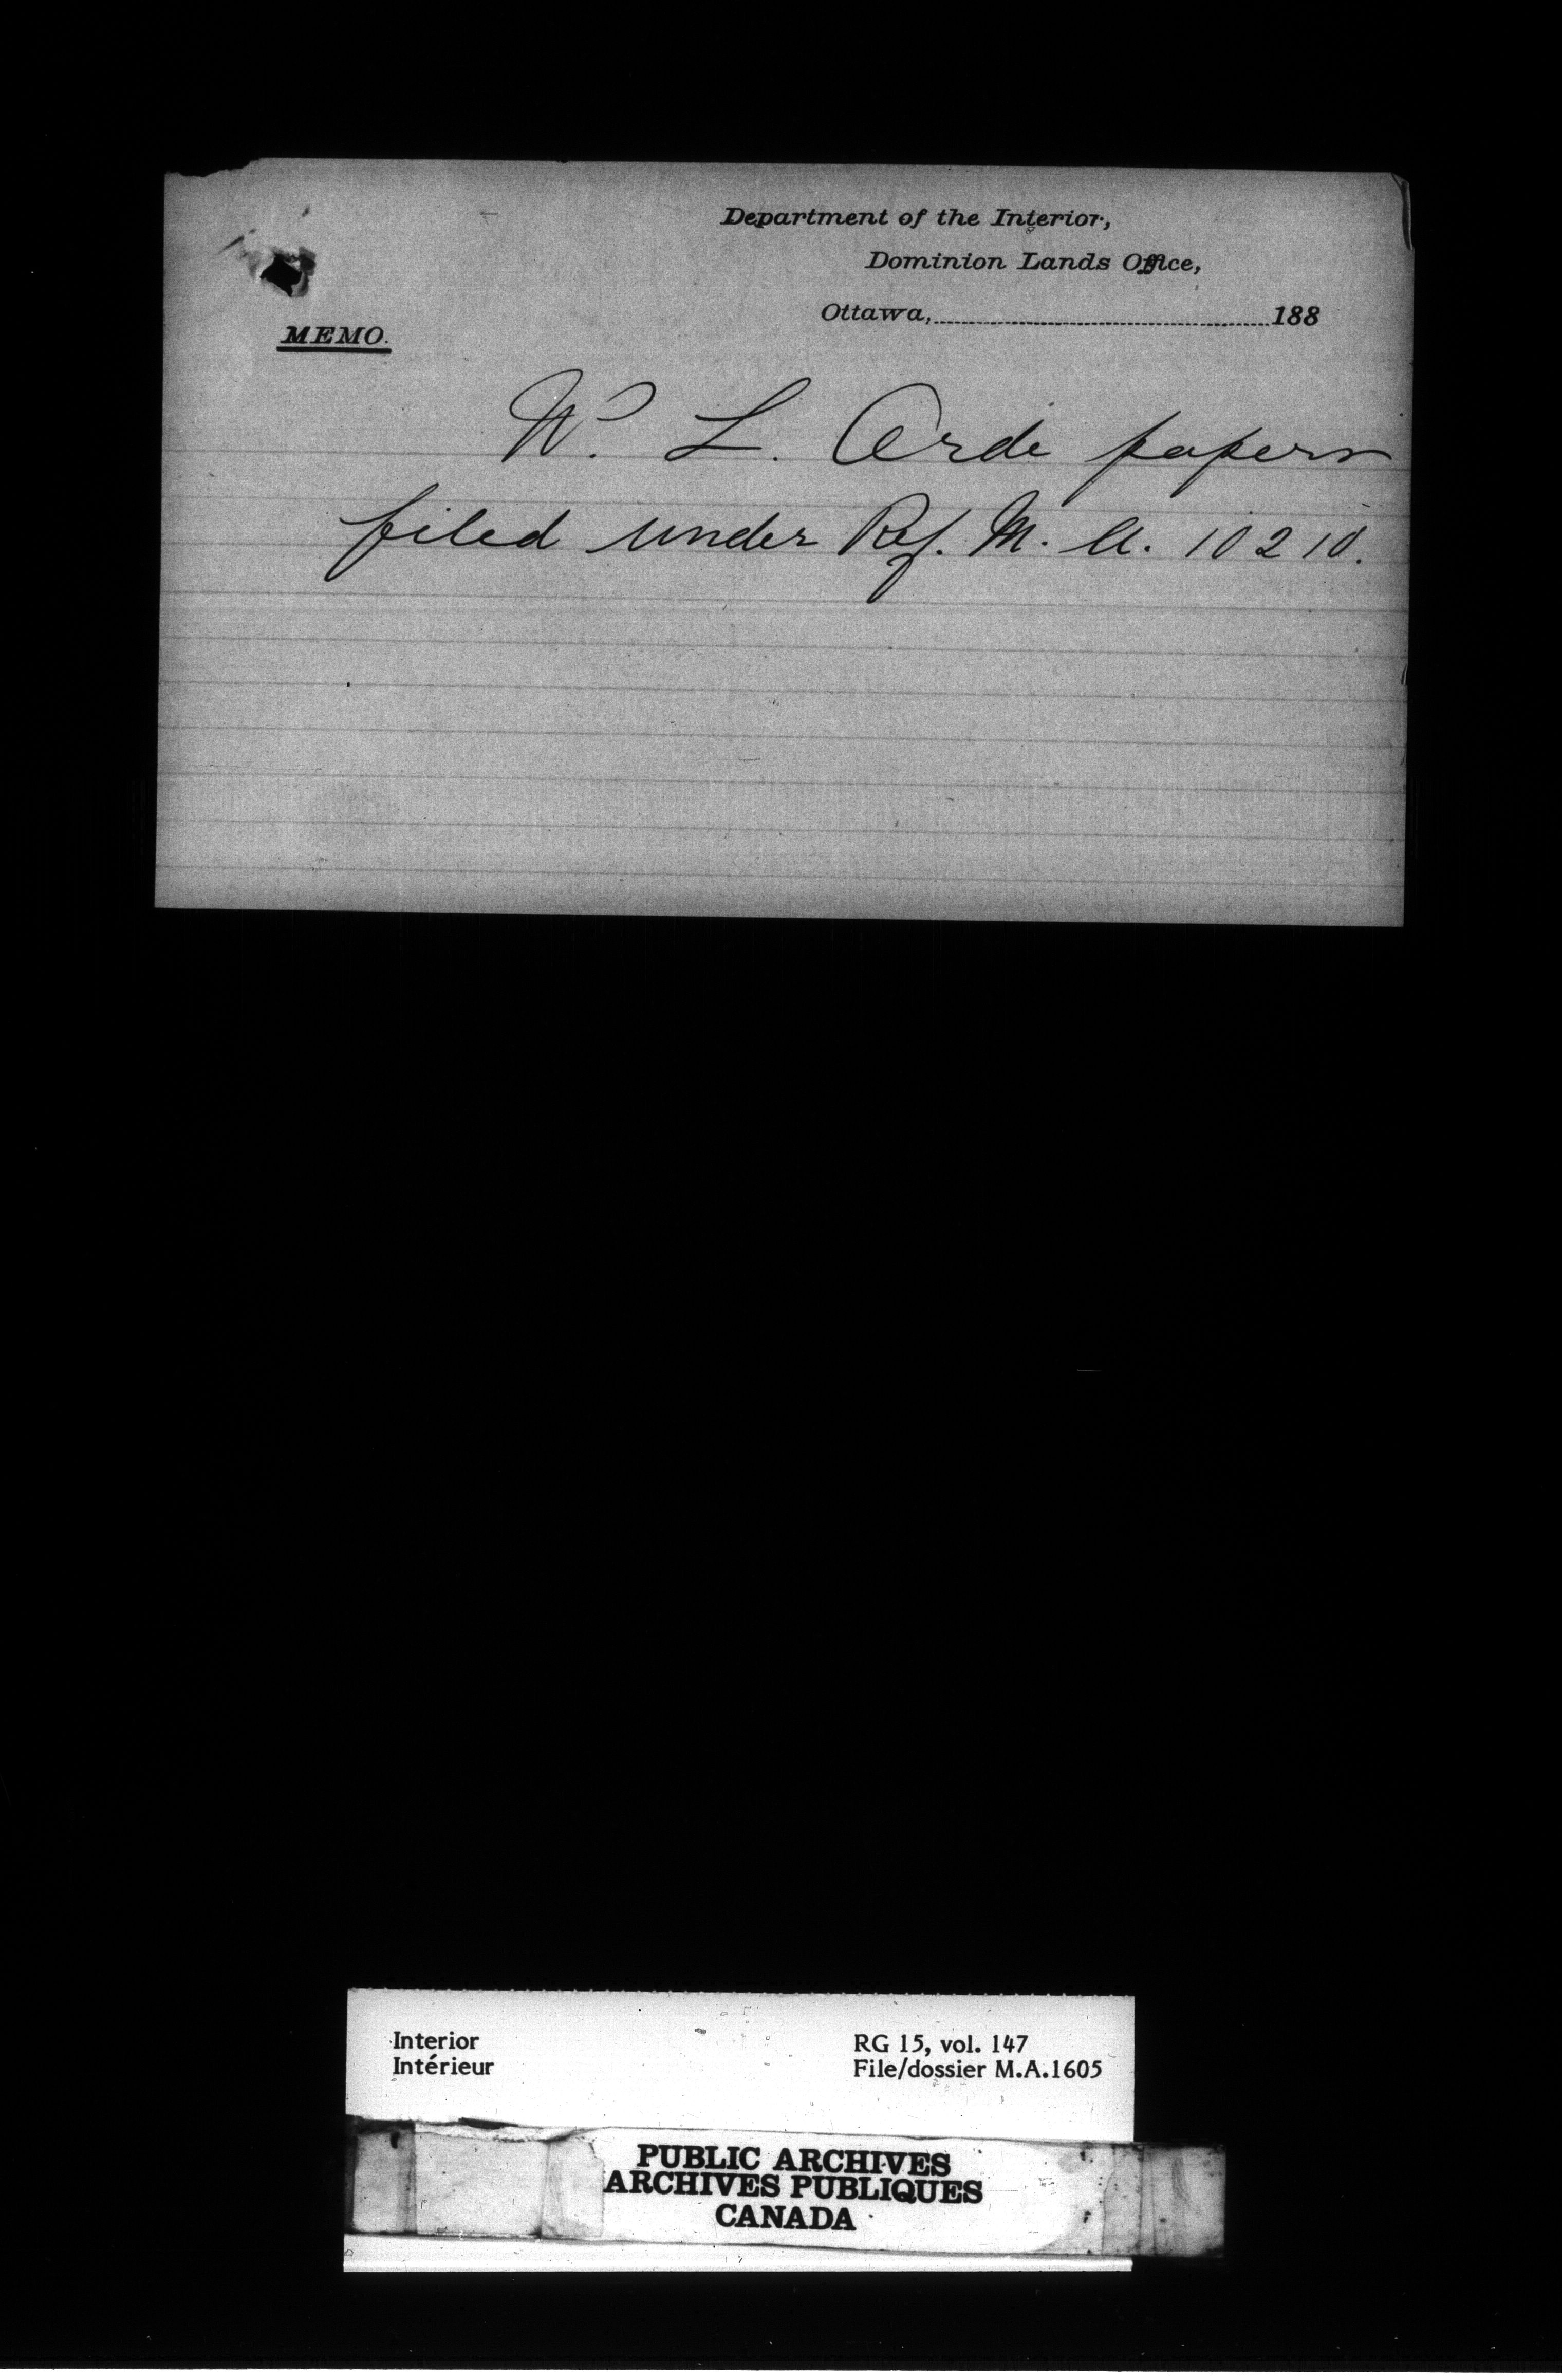 Department of the Interior,
Dominion Lands Office,
Ottawa, 188
MEMO.
W. L. Orde papers
filed under Ref. M. A. 10210.
Interior
Intérieur
RG 15, vol. 147
File/dossier M.A.1605
PUBLIC ARCHIVES
ARCHIVES PUBLIQUES
CANADA